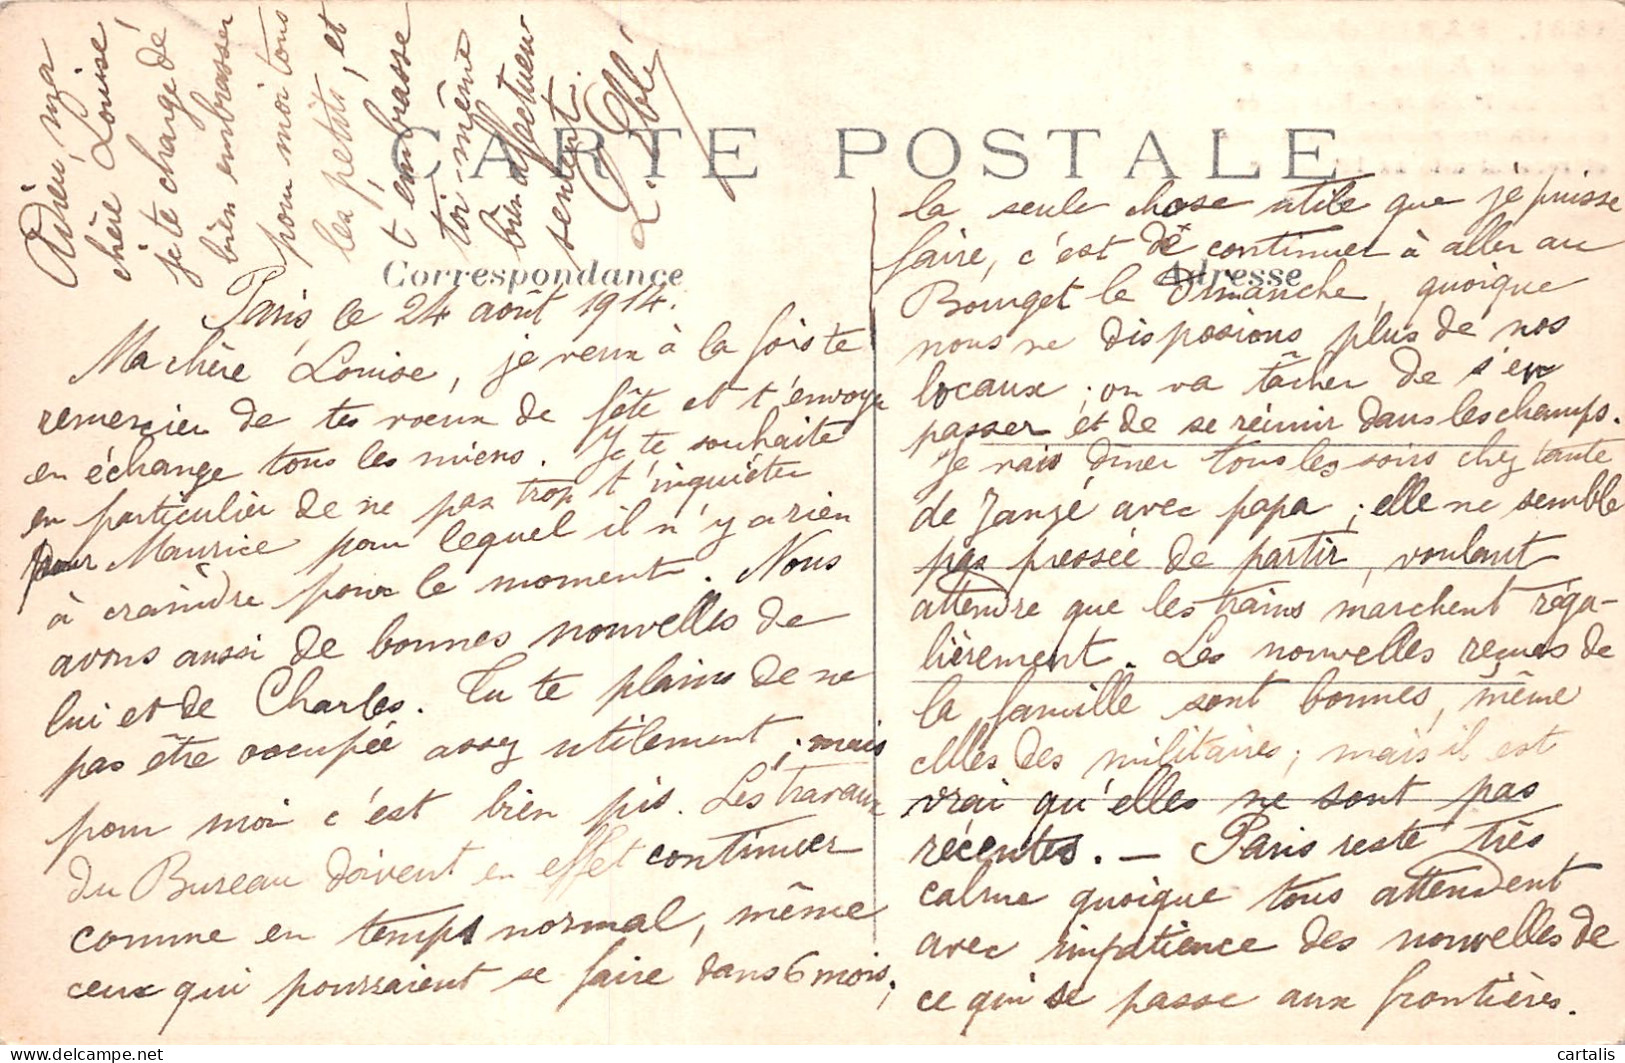 CARTE POSTALE
Correspondance
Adresse
Paris, le 24 août 1914.
Ma chère Louise, je veux à la fois te
remercier de tes vœux de fête et t'envoyer
en échange tous les miens. Je te souhaite
en particulier de ne pas trop t'inquiéter
pour Maurice pour lequel il n'y a rien
à craindre pour le moment. Nous
avons aussi de bonnes nouvelles de
lui et de Charles. Tu te plains de ne
pas être occupée assez utilement, mais
pour moi c'est bien pis. Les travaux
du Bureau doivent en effet continuer
comme en temps normal, même
ceux qui pourraient se faire dans 6 mois;
la seule chose utile que je puisse
faire, c'est de continuer à aller au
Bourget le Dimanche, quoique
nous ne disposions plus de nos
locaux; on va tâcher de s'en
passer et de se réunir dans les champs.
Je vais dîner tous les soirs chez tante
de Janzé avec papa; elle ne semble
pas pressée de partir, voulant
attendre que les trains marchent réga-
lièrement. Les nouvelles reçues de
la famille sont bonnes, même
celles des militaires; mais il est
vrai qu'elles ne sont pas
récentes. — Paris reste très
calme quoique tous attendent
avec impatience des nouvelles de
ce qui se passe aux frontières.
Adieu, ma
chère Louise
je te charge de
bien embrasser
pour moi tous
les petits, et
t'embrasse
toi même
bien affectueu
sement.
L. Eblé
cartalis